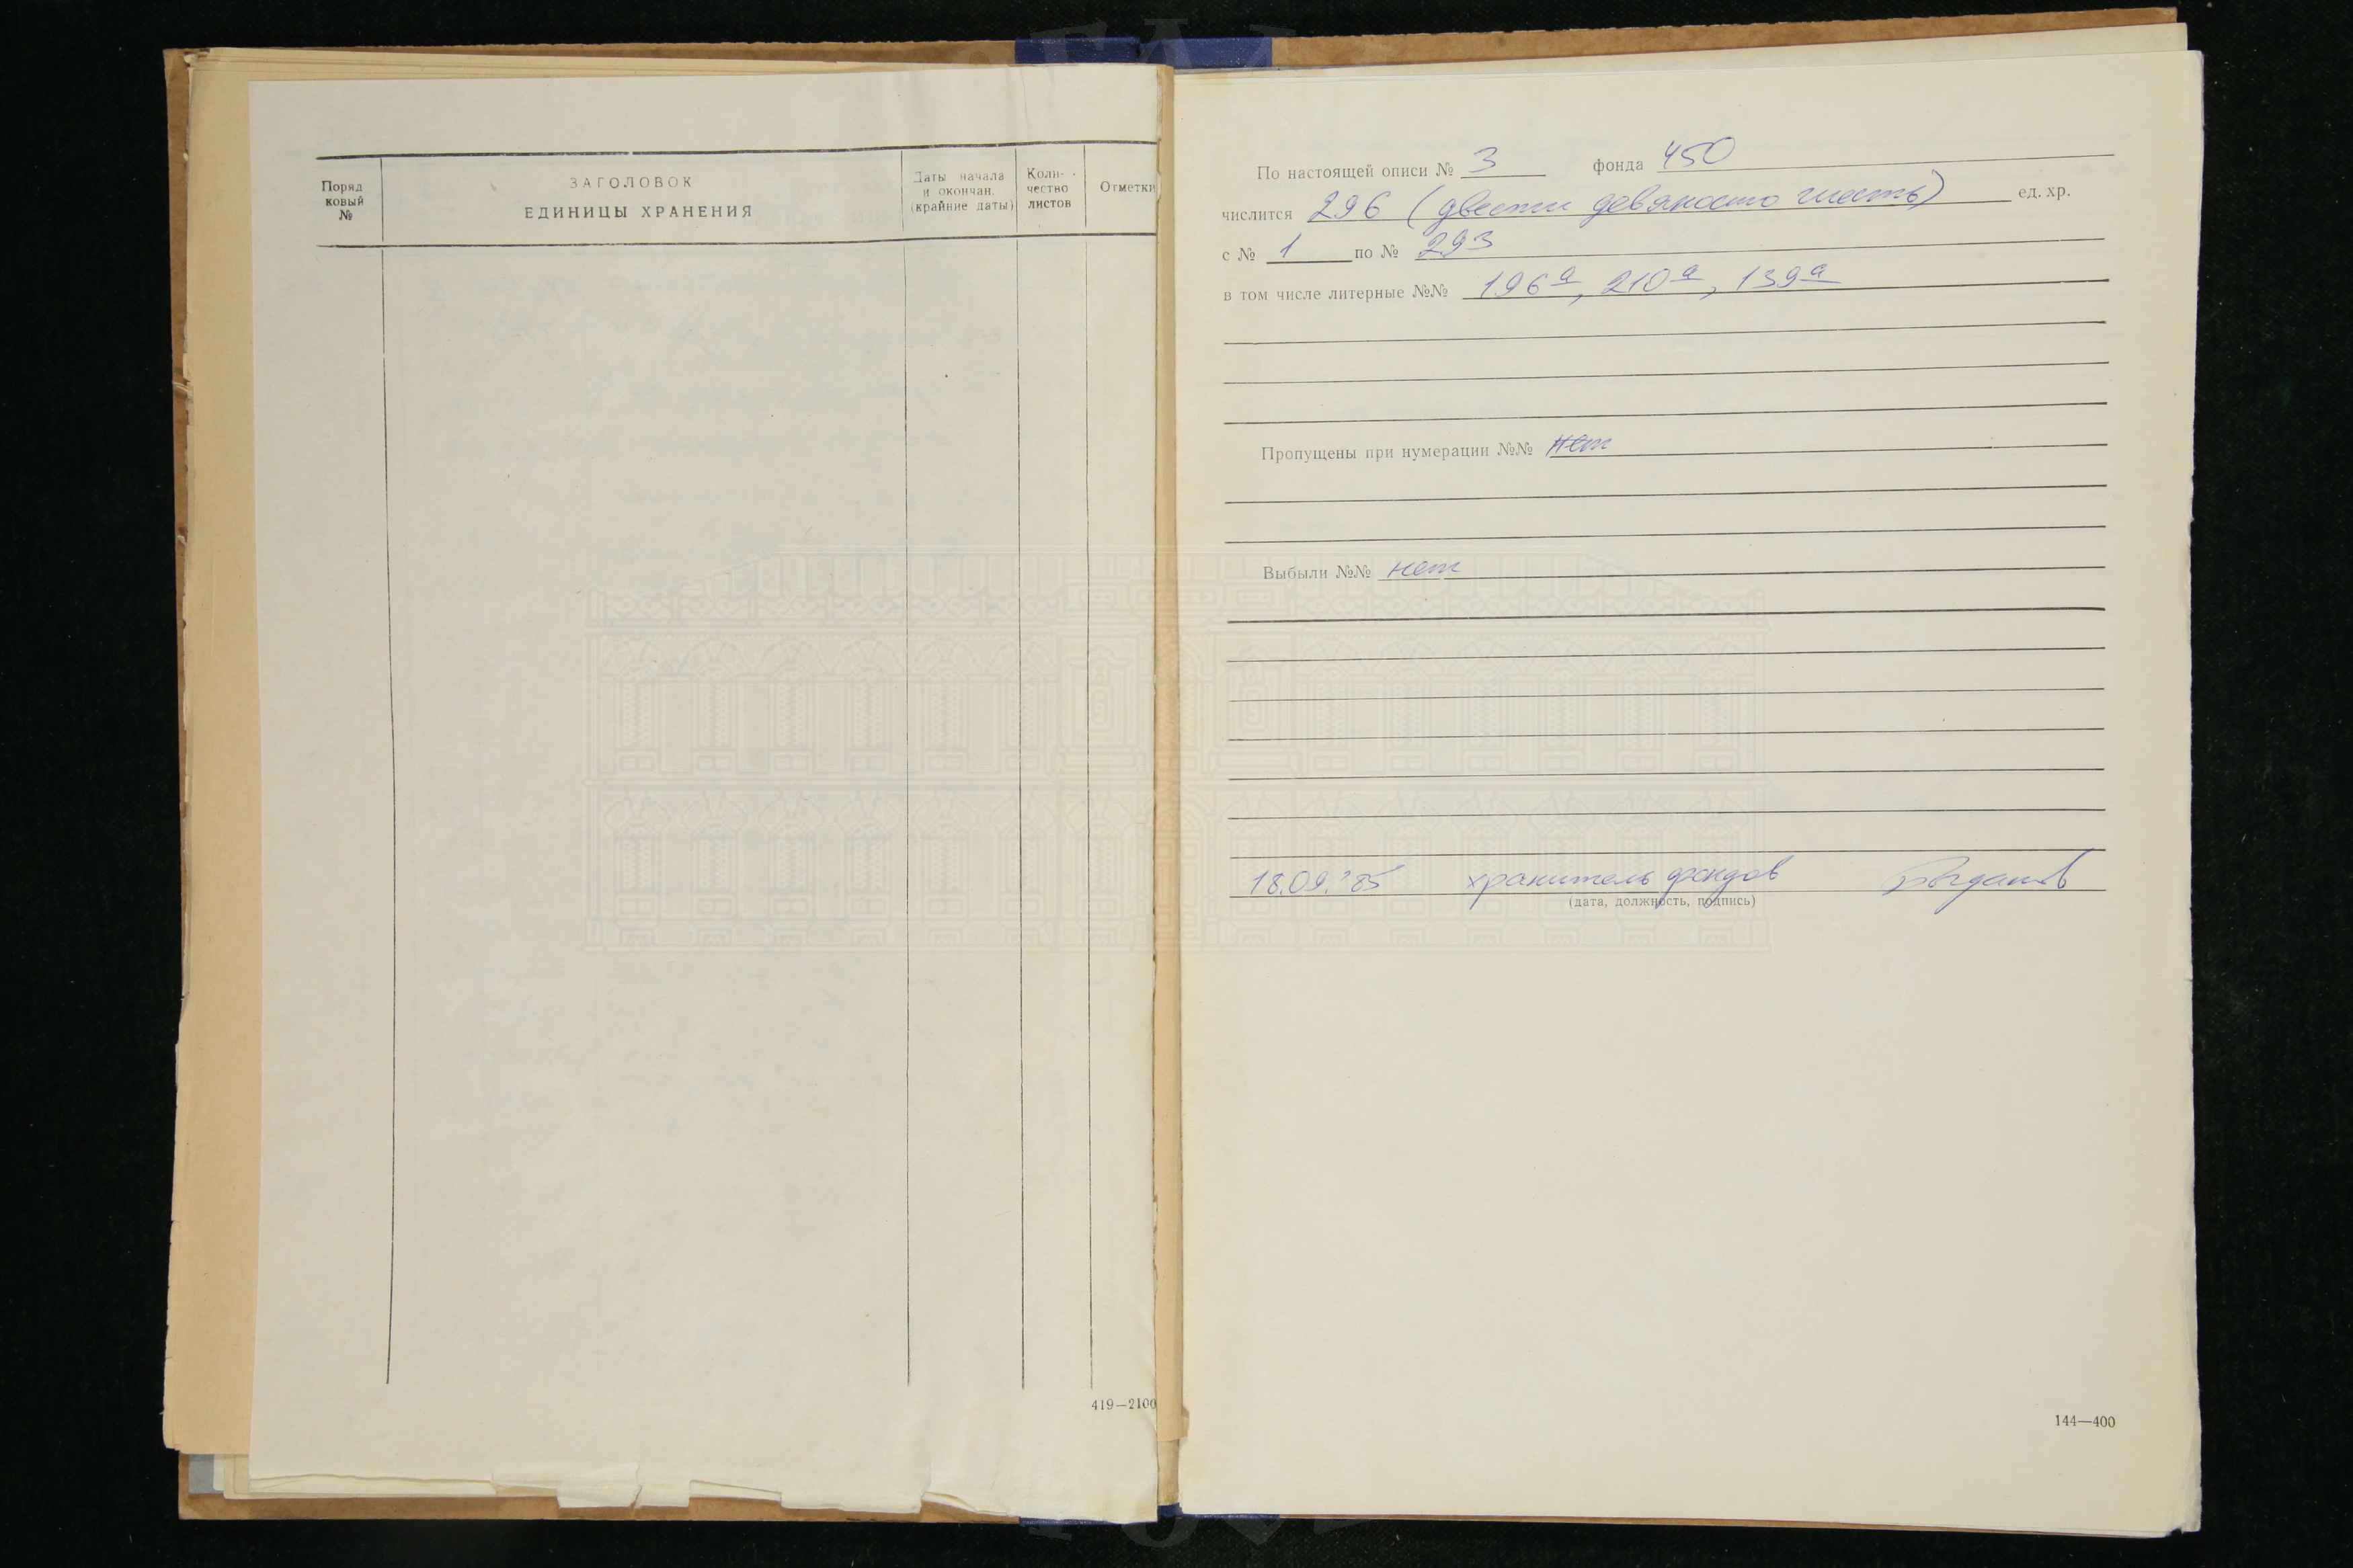 Поряд
ковый
№
ЗАГОЛОВОК
ЕДИНИЦЫ ХРАНЕНИЯ
Даты начала
и окончан.
(крайние даты)
Коли-
чество
листов
Отметки
419—2100
По настоящей описи № 3 фонда 450
числится 296 (двести девяносто шесть) ед. хр.
с № 1 по № 293
в том числе литерные №№ 196а, 210а, 139а
Пропущены при нумерации №№ нет
Выбыли №№ нет
18.09.85 хранитель фондов
(дата, должность, подпись)
144—400